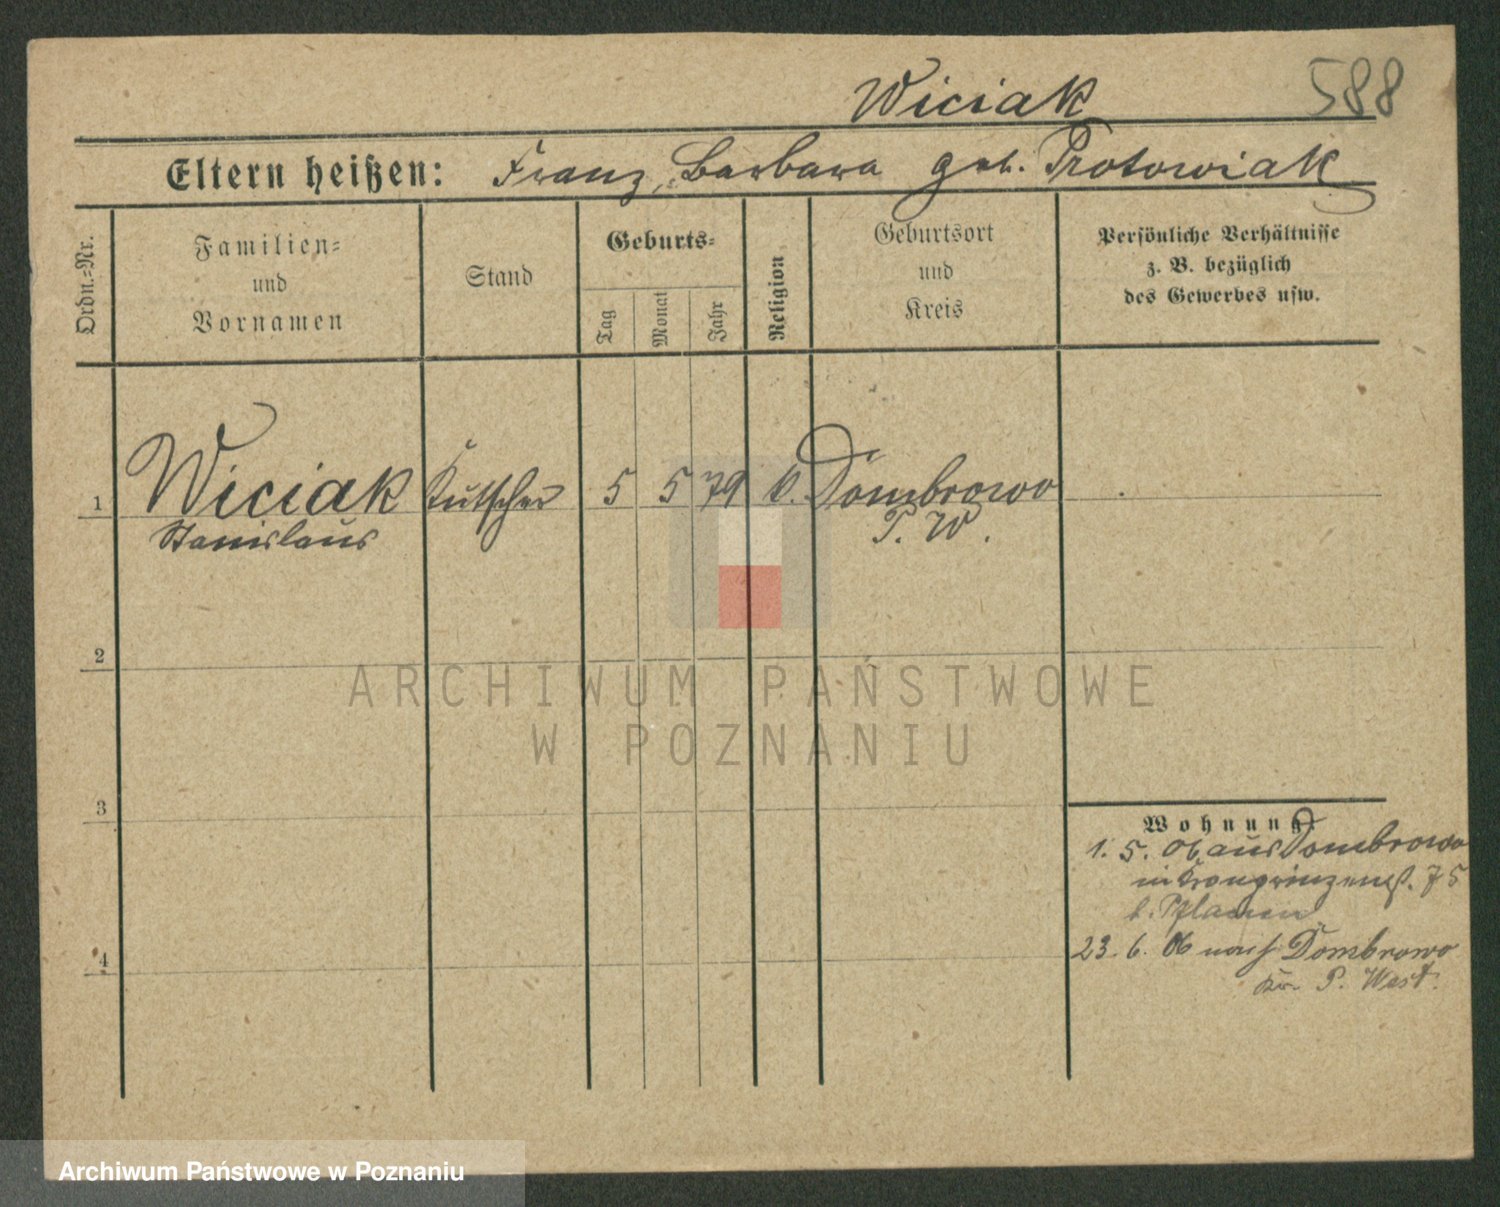 Wiciak 588
Eltern heißen: Franz, Barbara geb. Protowiak
Ordn.=Nr.
Familien=
und
Vornamen
Stand
Geburts=
Tag
Monat
Jahr
Religion
Geburtsort
und
Kreis
Persönliche Verhältnisse
z. B. bezüglich
des Gewerbes usw.
1 Wiciak Kutscher 5 5 79 k. Dombrowo
Stanislaus P. W.
2
ARCHIWUM PAŃSTWOWE
W POZNANIU
3
Wohnung.
1. 5. 06 aus Dombrowo
in Kronprinzenst. 75
b.
4
23. 6. 06 nach Dombrowo
Kr. P. West.
Archiwum Państwowe w Poznaniu